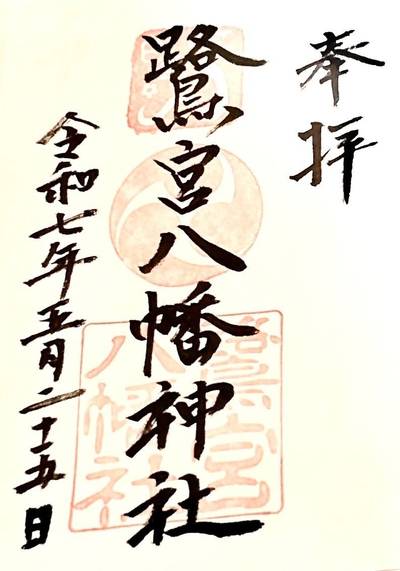 奉拝
鷺宮八幡神社
令和七年五月二十五日
鷺宮八幡社